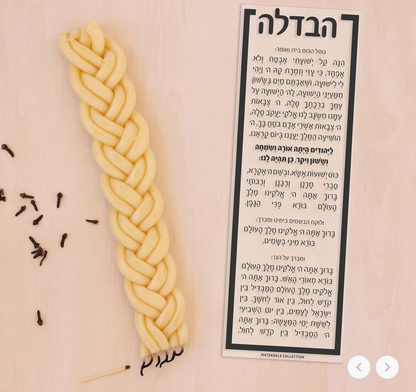 הבדלה
נוטל הכוס בידו ואומר:
הִנֵּה קֵל יְשׁוּעָתִי אֶבְטַח וְלֹא
אֶפְחָד, כִּי עָזִּי וְזִמְרָת קָהּ ה' וַיְהִי
לִי לִישׁוּעָה. וּשְׁאַבְתֶּם מַיִם בְּשָׂשׂוֹן
מִמַּעַיְנֵי הַיְשׁוּעָה. לַה' הַיְשׁוּעָה עַל
עַמְּךָ בִרְכָתֶךָ סֶּלָה. ה' צְבָאוֹת
עִמָּנוּ מִשְׂגָּב לָנוּ אֱלֹקֵי יַעֲקֹב סֶלָה.
ה' צְבָאוֹת אַשְׁרֵי אָדָם בֹּטֵחַ בָּךְ. ה'
הוֹשִׁיעָה הַמֶּלֶךְ יַעֲנֵנוּ בְיוֹם קָרְאֵנוּ.
לַיְּהוּדִים הָיְתָה אוֹרָה וְשִׂמְחָה
וְשָׂשׂוֹן וִיקָר. כֵּן תִּהְיֶה לָּנוּ:
כּוֹס יְשׁוּעוֹת אֶשָּׂא, וּבְשֵׁם ה' אֶקְרָא.
סַבְרִי מָרָנָן וְרַבָּנָן וְרַבּוֹתַי
בָּרוּךְ אַתָּה ה' אֱלֹקֵינוּ מֶלֶךְ
הָעוֹלָם בּוֹרֵא פְּרִי הַגָּפֶן.
ולוקח הבשמים בימינו ומברך:
בָּרוּךְ אַתָּה ה' אֱלֹקֵינוּ מֶלֶךְ הָעוֹלָם
בּוֹרֵא מִינֵי בְשָׂמִים.
ומברך על הנר:
בָּרוּךְ אַתָּה ה' אֱלֹקֵינוּ מֶלֶךְ הָעוֹלָם
בּוֹרֵא מְאוֹרֵי הָאֵשׁ. בָּרוּךְ אַתָּה ה'
אֱלֹקֵינוּ מֶלֶךְ הָעוֹלָם הַמַּבְדִּיל בֵּין
קֹדֶשׁ לְחוֹל, בֵּין אוֹר לְחֹשֶׁךְ, בֵּין
יִשְׂרָאֵל לָעַמִּים, בֵּין יוֹם הַשְּׁבִיעִי
לְשֵׁשֶׁת יְמֵי הַמַּעֲשֶׂה: בָּרוּךְ אַתָּה
ה' הַמַּבְדִּיל בֵּין קֹדֶשׁ לְחוֹל.
WATERDALE COLLECTION